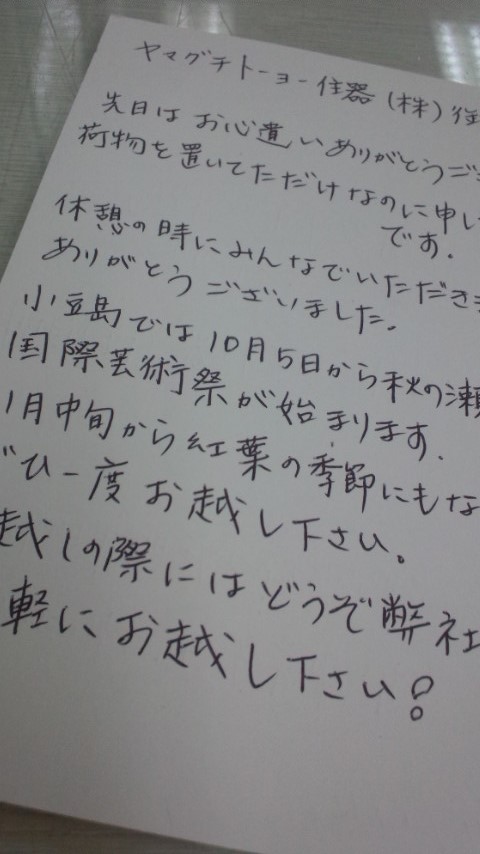 ヤマグチトーヨー住器(株)
先日はお心遣いありがとうござ
荷物を置いてただけなのに申し
です.
休憩の時にみんなでいただきま
ありがとうございました.
小豆島では10月5日から秋の瀬
国際芸術祭が始まります.
1月中旬から紅葉の季節にもな
ひ一度お越し下さい。
越しの際にはどうぞ弊社
軽にお越し下さい!